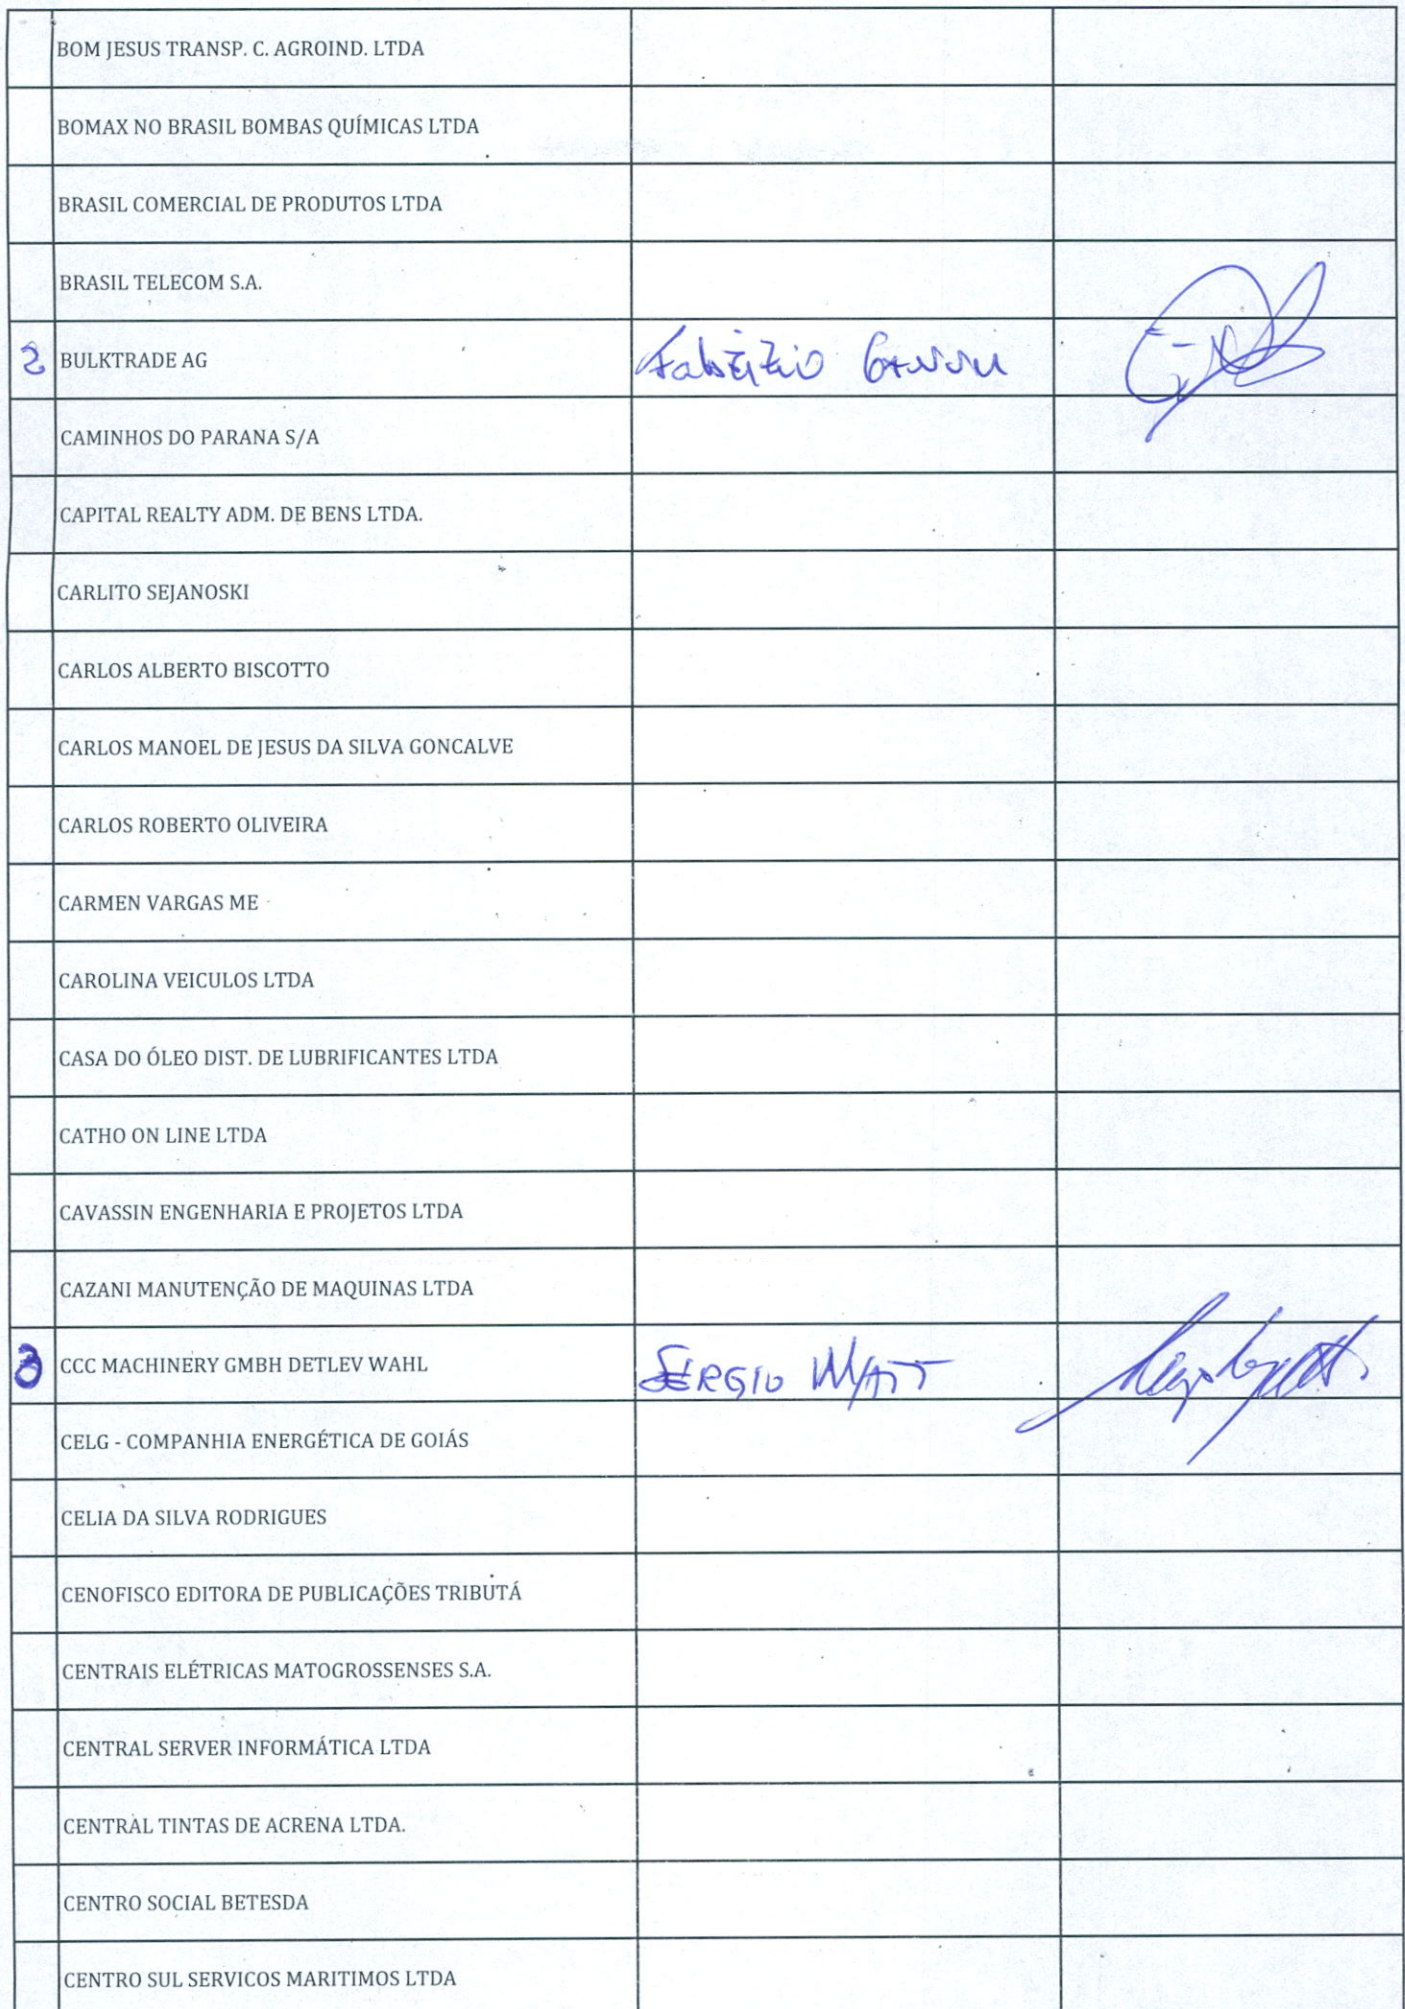 BOM JESUS TRANSP. C. AGROIND. LTDA
BOMAX NO BRASIL BOMBAS QUÍMICAS LTDA
BRASIL COMERCIAL DE PRODUTOS LTDA
BRASIL TELECOM S.A.
2 BULKTRADE AG Fabrizio
CAMINHOS DO PARANA S/A
CAPITAL REALTY ADM. DE BENS LTDA.
CARLITO SEJANOSKI
CARLOS ALBERTO BISCOTTO
CARLOS MANOEL DE JESUS DA SILVA GONCALVE
CARLOS ROBERTO OLIVEIRA
CARMEN VARGAS ME
CAROLINA VEICULOS LTDA
CASA DO ÓLEO DIST. DE LUBRIFICANTES LTDA
CATHO ON LINE LTDA
CAVASSIN ENGENHARIA E PROJETOS LTDA
CAZANI MANUTENÇÃO DE MAQUINAS LTDA
3 CCC MACHINERY GMBH DETLEV WAHL SERGIO
CELG - COMPANHIA ENERGÉTICA DE GOIÁS
CELIA DA SILVA RODRIGUES
CENOFISCO EDITORA DE PUBLICAÇÕES TRIBUTÁ
CENTRAIS ELÉTRICAS MATOGROSSENSES S.A.
CENTRAL SERVER INFORMÁTICA LTDA
CENTRAL TINTAS DE ACRENA LTDA.
CENTRO SOCIAL BETESDA
CENTRO SUL SERVICOS MARITIMOS LTDA